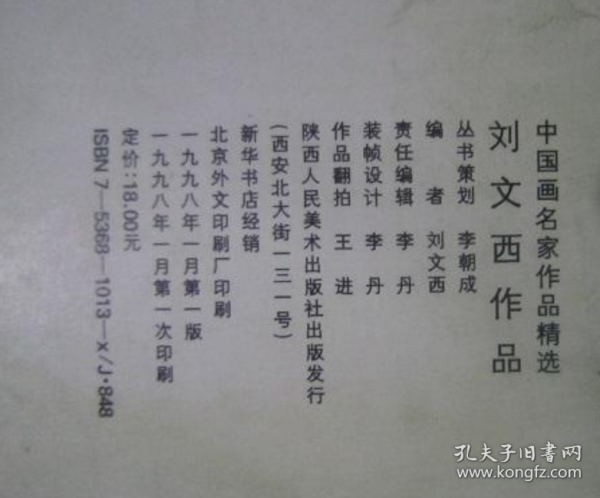 中国画名家作品精选
刘文西作品
丛书策划 李朝成
编者 刘文西
责任编辑 李丹
装帧设计 李丹
作品翻拍 王进
陕西人民美术出版社出版发行
(西安北大街一三一号)
新华书店经销
北京外文印刷厂印刷
一九九八年一月第一版
一九九八年一月第一次印刷
定价:18.00元
ISBN 7—5368—1013—x/J·848
孔夫子旧书网
www.kongfz.com